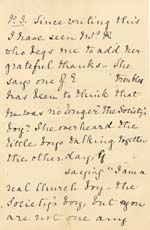 P.S. Since writing this
I have seen Mrs. R
who begs me to add her
grateful thanks - She
says one of E. troubles
has been to think that
he was no longer "the Society's
boy". She overheard the
little boys talking together
the other day,
saying "I am a
real Church boy - the
Society's boy, but you
are not one any